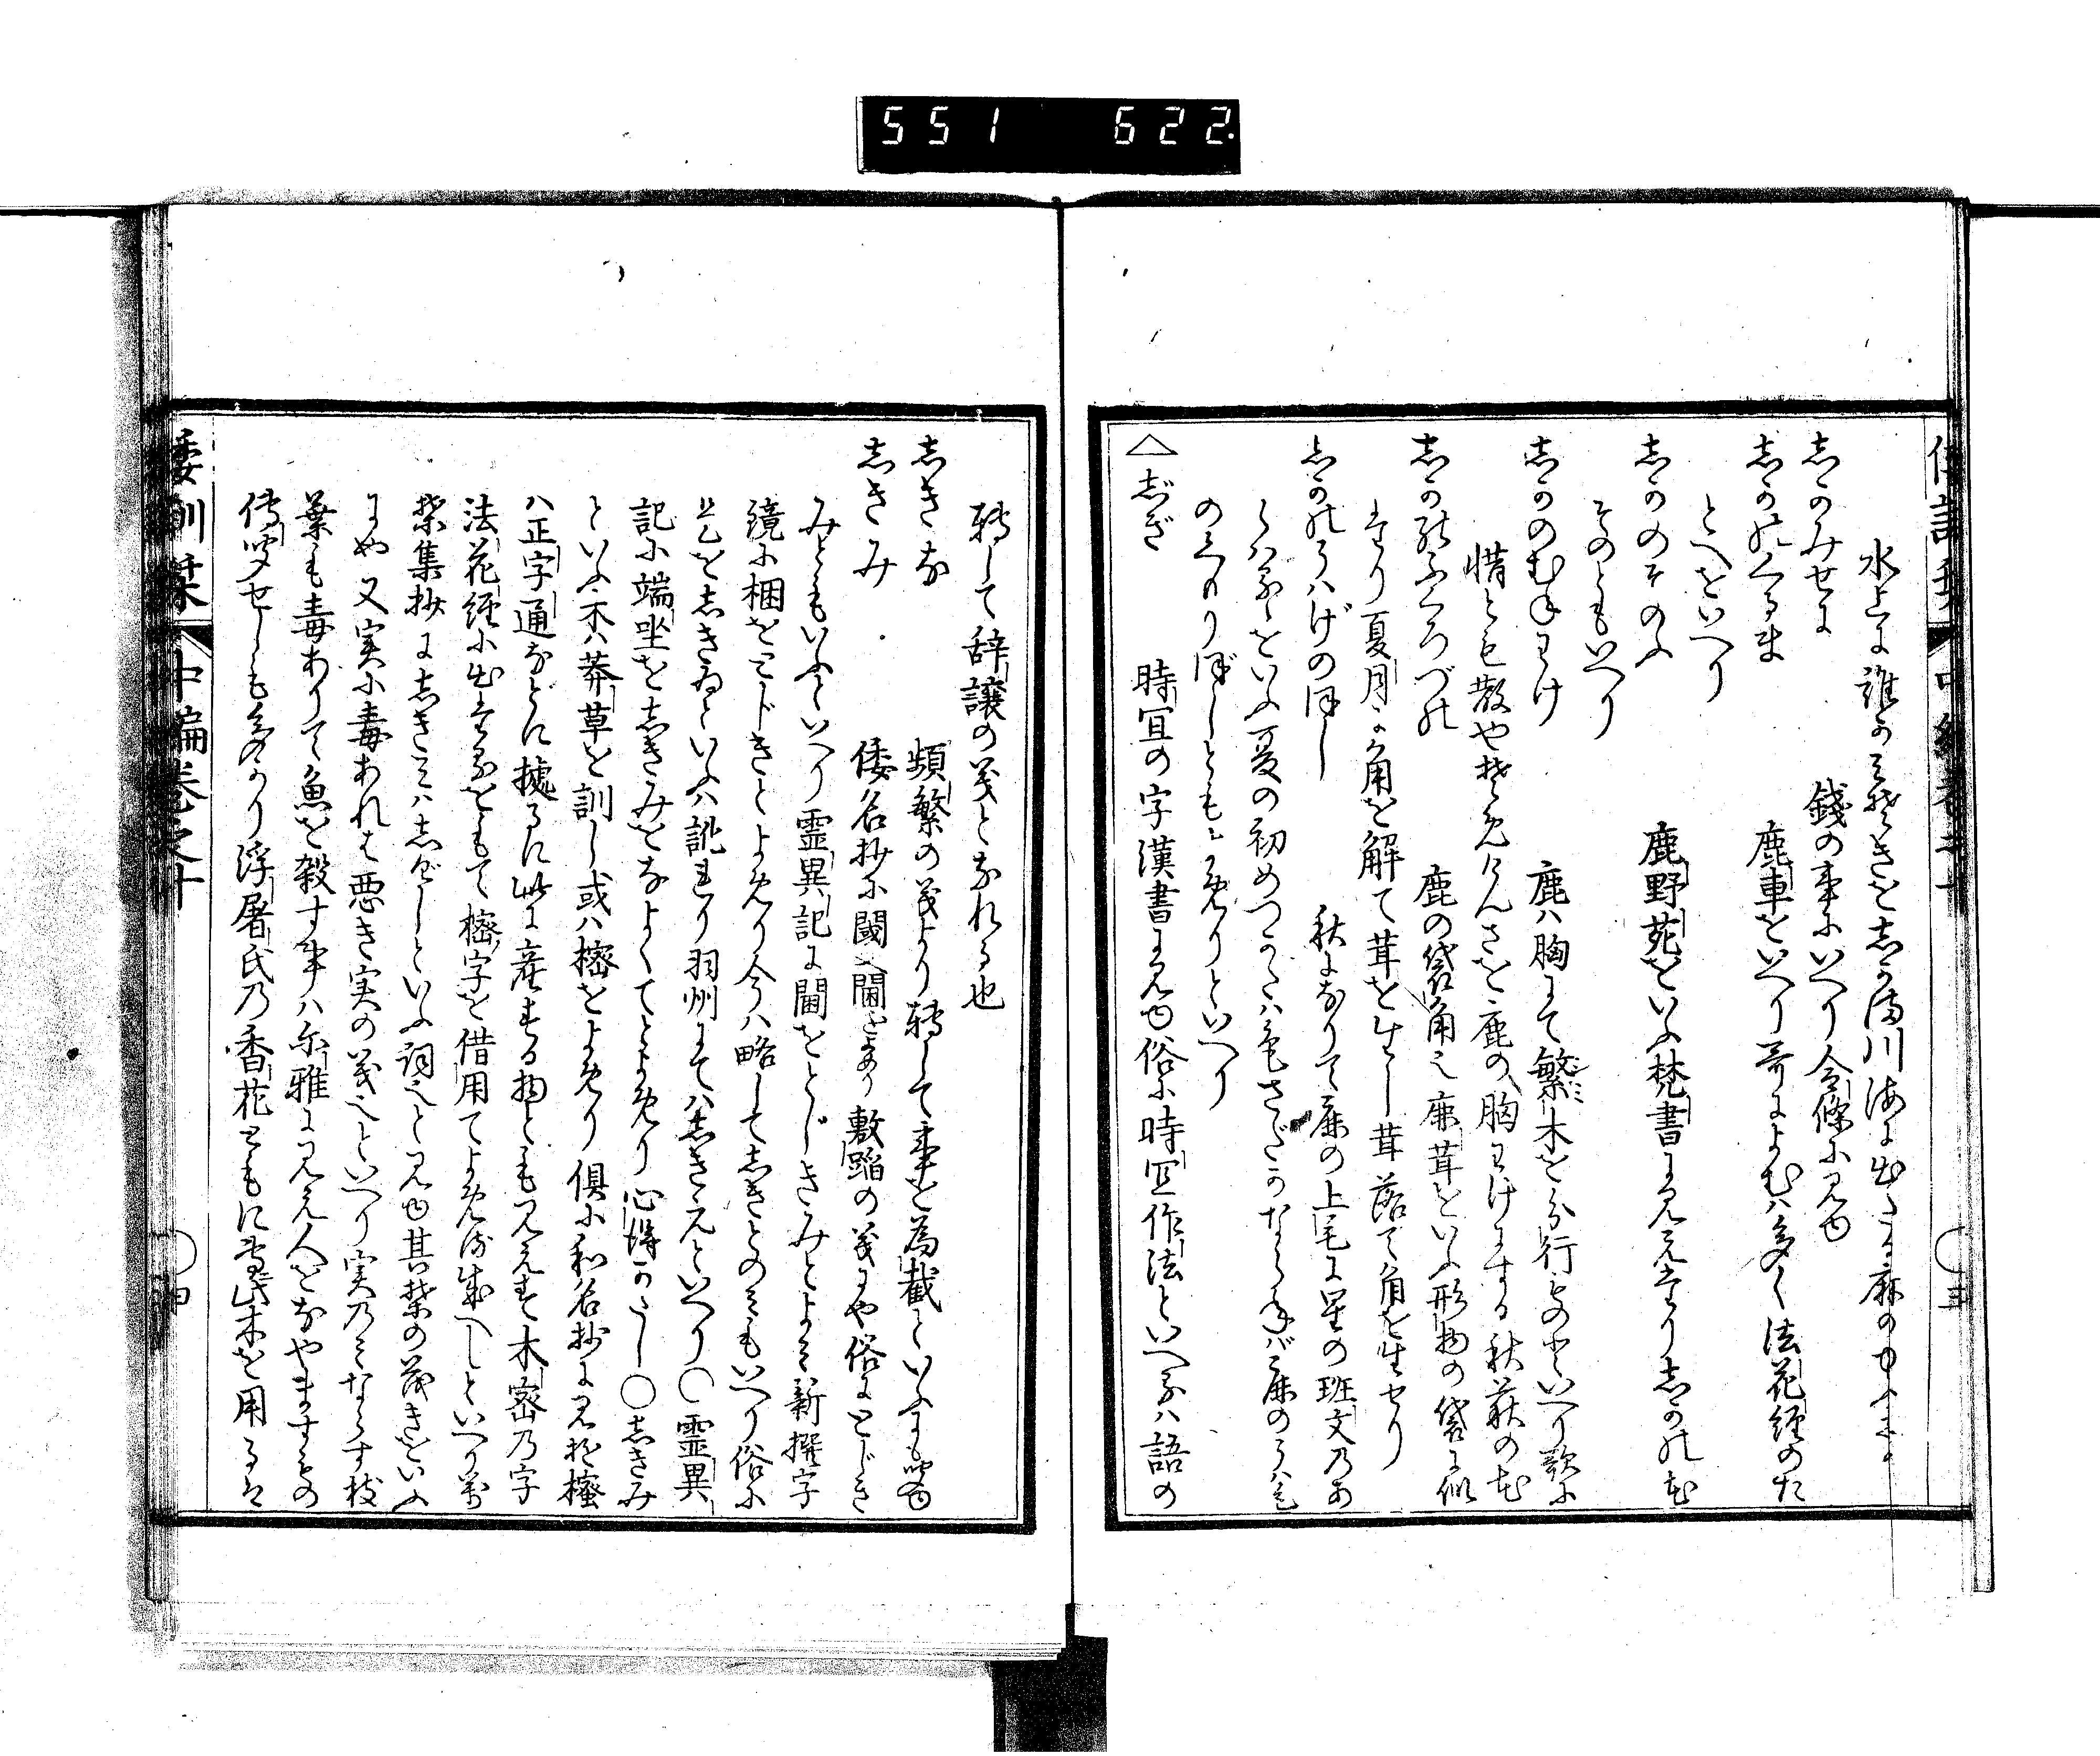 551 622
水上に誰かみそきをしかま川海に出たる麻のゆふして
しかのみせに 錢の事にいへり今條に見ゆ
しかのくるま 鹿車をいへり哥によむは多く法花経のた
とへをいへり
しかのそのふ 鹿野苑をいふ梵書に見えたり志かのその
そのともいへり
しかのむねわけ 鹿ハ胸にて繁木を分行ものといへり歌に
惜とも散やそめけんさを鹿の胸わけにする秋萩の花
しかのふくろづの 鹿の袋角也鹿茸をいふ形物の袋に似
たり夏月に角を解て茸を生し茸落て角を生せり
しかのうハげのほし 秋になりて鹿の上毛に星の班文乃あ
らハるゝをいふ夏の初めつかたハ色さだかならねバ鹿のうハ毛
のくもりぼしともよめりといへり
△しぎ 時宜の字漢書に見ゆ俗に時宜作法といへるハ語の
轉して辞譲の義となれる也
しきな 頻繁の義より轉して事を為截といふにも聞ゆ
しきみ 倭名抄に閾又閫をよめり敷蹈の義にや俗にとじき
みともいふといへり霊異記に閫をとじきみとよみ新撰字
鏡に梱をとじきとよめり今ハ略してしきとのみもいへり俗に
是をしきゐといふハ訛れり羽州にてハしきえといへり○霊異
記に端坐をしきみをなよくてとよめり心得かたし○しきみ
といふ木ハ莽草を訓し或ハ樒をよめり倶に和名抄に見ゆ樒
ハ正字通などに據るに此に産する物とも見えす木密乃字
法花経に出たるをもて樒字を借用てよめる成へしといへり萬
葉集抄にしきみハしげしといふ詞也と見ゆ其葉の茂きをいふ
にや又実に毒あれは悪き実の義也といへり実乃みならす枝
葉も毒ありて魚を殺す事ハ尓雅に見え人をなやますもの
傳聞せしも多かり浮屠氏乃香花ともに専此木を用るは
倭訓栞 中編巻之十 ○四